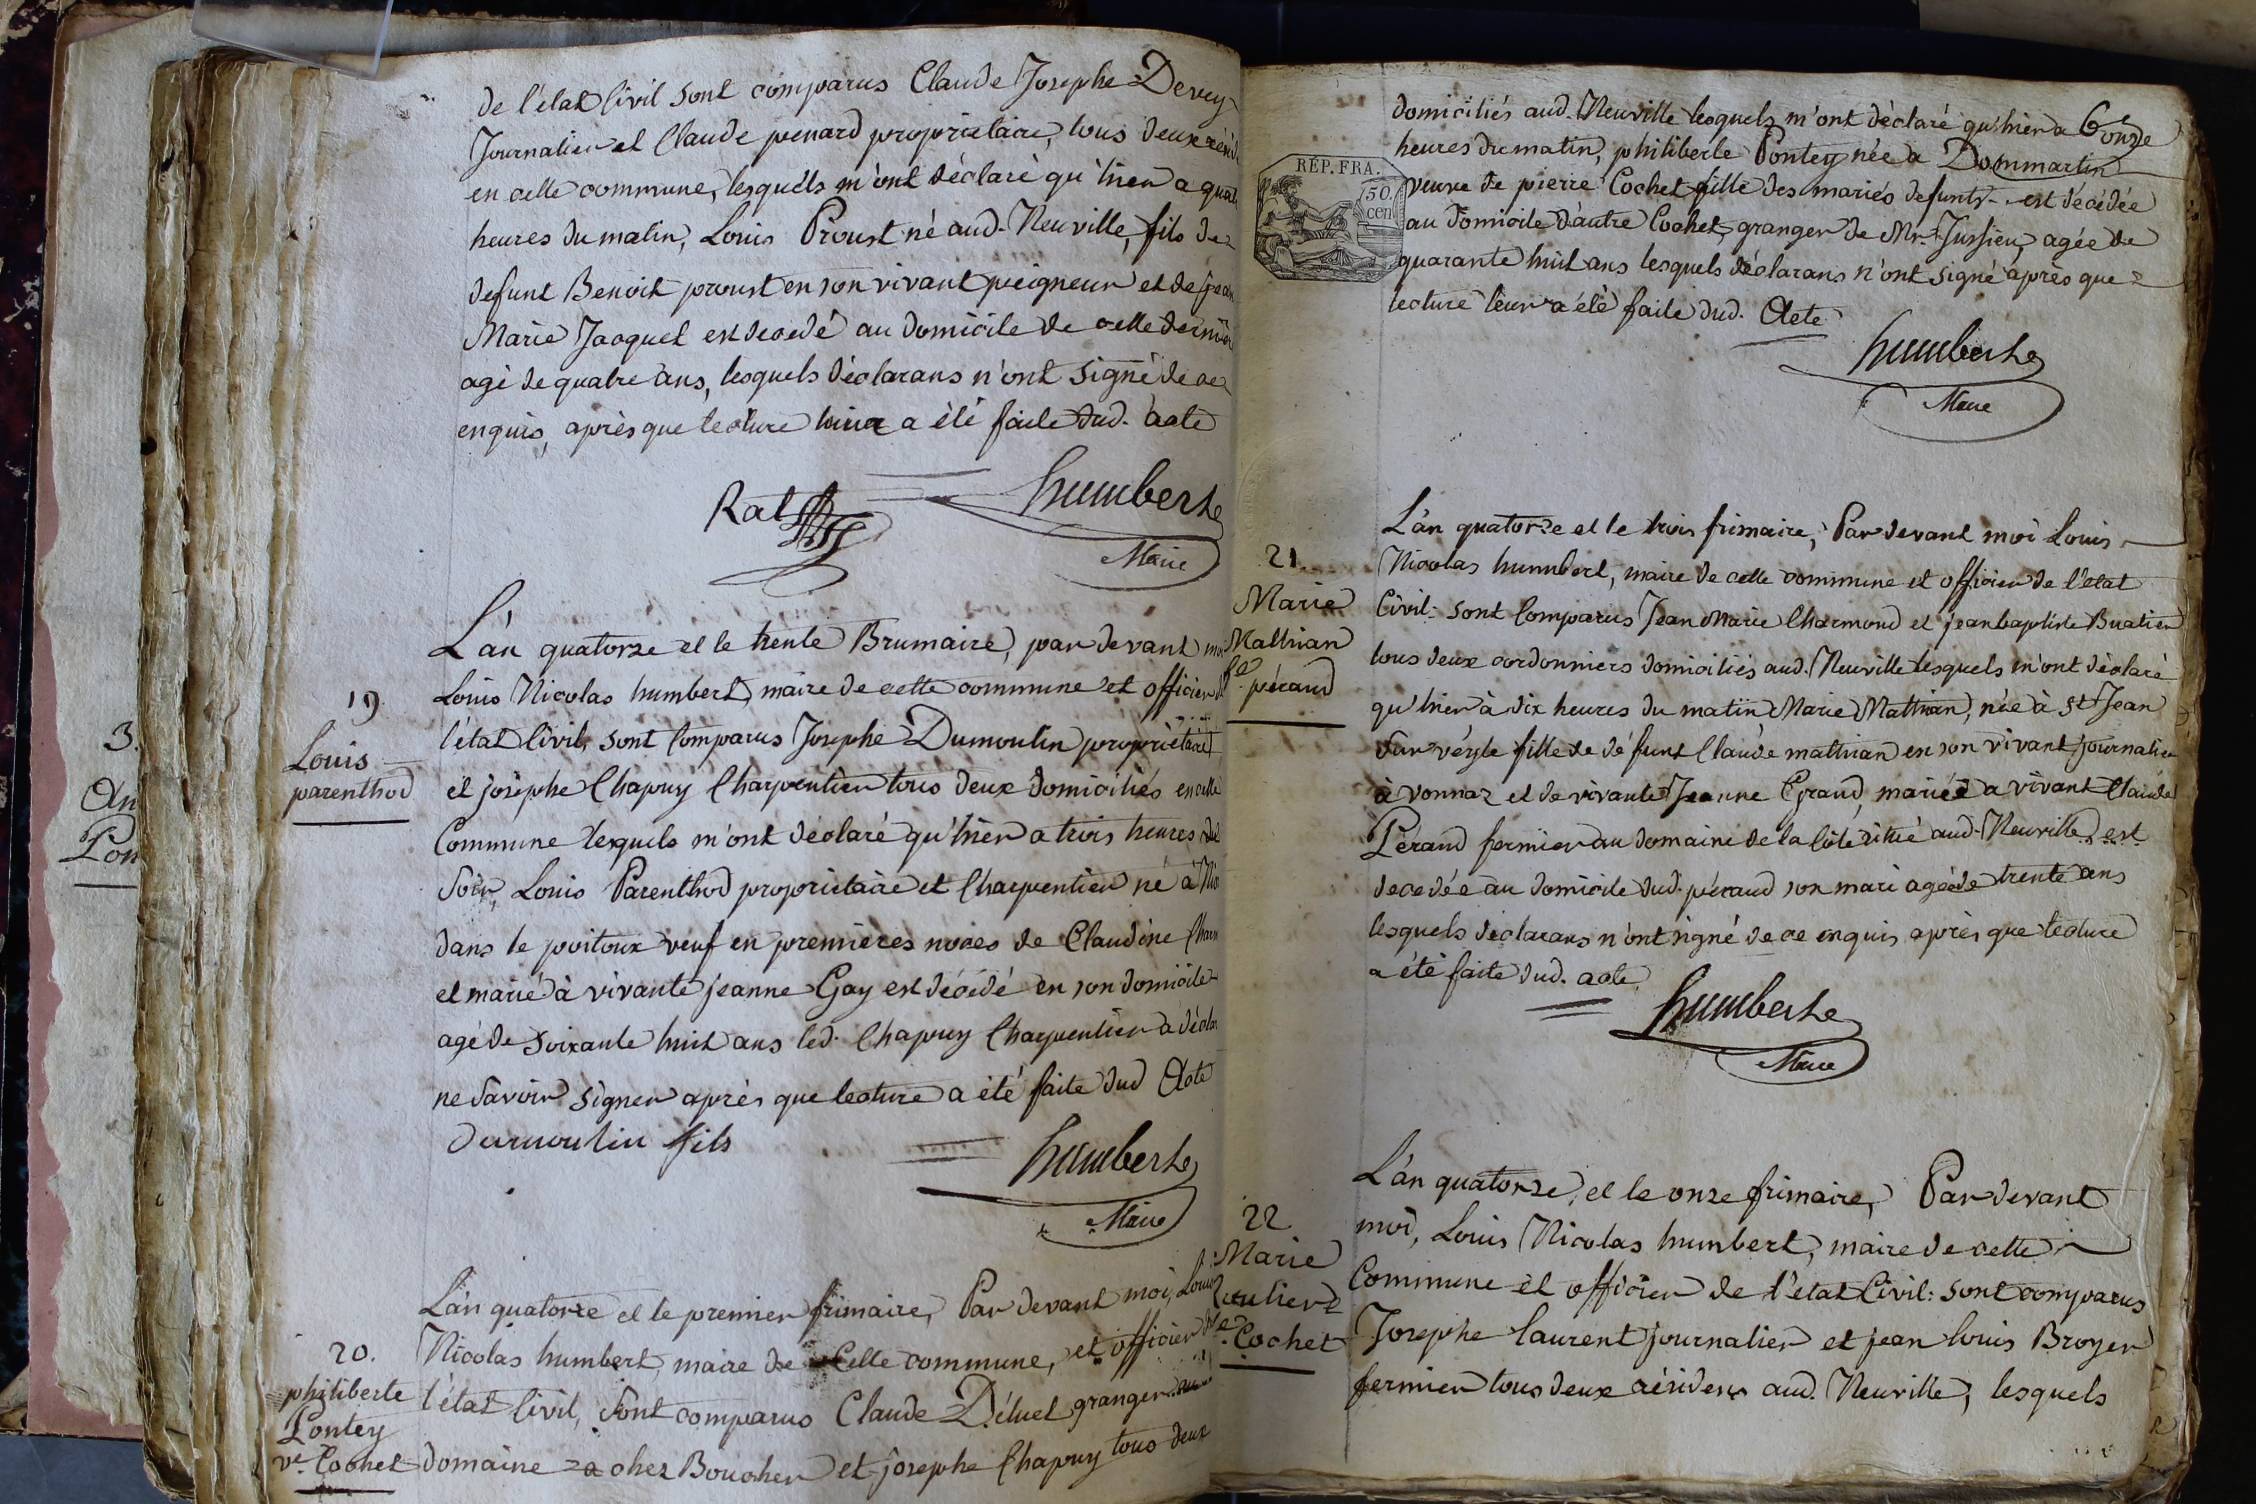 de l'état Civil sont comparus Claude Josephe Devey
Journalier et Claude penard propriétaire, tous deux
en cette commune, lesquels m'ont déclaré qu'hier a
heures du matin, Louis Proust né aud. Neuville, fils de
defunt Benoit proust en son vivant peigneur et de
Marie Jacquet est decedé au domicile de cette
agé de quatre ans, lesquels déclarans n'ont signé de ce
enquis, après que lecture a été faite dud. acte
Rat
humbert
Maire
19
Louis
parenthod
L'an quatorze et le trente Brumaire, par devant
Louis Nicolas humbert, maire de cette commune et officier
l'état Civil, sont Comparus Josephe Dumoulin propriétaire
et josephe Chapuy Charpentier tous deux domiciliés
Commune lesquels m'ont déclaré qu'hier a trois heures
Soir, Louis Parenthod proprietaire et Charpentier né à
dans le poitoux veuf en premières noces de Claudine
et marié à vivante jeanne Gay est décédé en son domicile
agé de soixante huit ans led. Chapuy Charpentier a
ne savoir signer après que lecture a été faite dud Acte
Dumoulin fils
humbert
Maire
20.
philiberte
Pontey
ve. Cochet
L'an quatorze et le premier frimaire, Par devant moi, Louis
Nicolas humbert, maire de cette commune, et officier
l'état Civil, sont comparus Claude Détuet granger
domaine a chez Boucher et josephe Chapuy tous deux
3.
domiciliés aud. Neuville lesquels m'ont déclaré qu'hier a onze
heures du matin, philiberte Pontey née a Dommartin
veuve de pierre Cochet fille des mariés defunts est décédée
au Domicile d'autre Cochet, granger de Mr. Jussieu, agée de
quarante huit ans lesquels déclarans n'ont signé après que
lecture leur a été faite dud. Acte
RÉP. FRA.
50
cen
humbert
Maire
21
Marie
Mathian
fe. pérand
L'an quatorze et le trois frimaire, Par devant moi Louis
Nicolas humbert, maire de cette commune et officier de l'état
Civil: sont Comparus Jean Marie Charmond et jean baptiste Buatier
tous deux cordonniers domiciliés aud. Neuville lesquels m'ont déclaré
qu'hier à dix heures du matin Marie Mathian, née à St Jean
Sur véyle fille de défunt Claude mathian en son vivant journalier
à vonnaz et de vivante Jeanne Grand, mariée a vivant Claude
Pérand fermier au domaine de la Côte situé aud. Neuville, est
decedée au domicile dud. pérand son mari agée de trente ans
lesquels déclarans n'ont signé de ce enquis après que lecture
a été faite dud. acte
humbert
Maire
22
Marie
Cochet
L'an quatorze, et le onze frimaire, Par devant
moi, Louis Nicolas humbert, maire de cette
Commune et officier de l'état Civil: sont comparus
Josephe laurent journalier et jean louis Broyer
fermier tous deux résidens aud. Neuville, lesquels